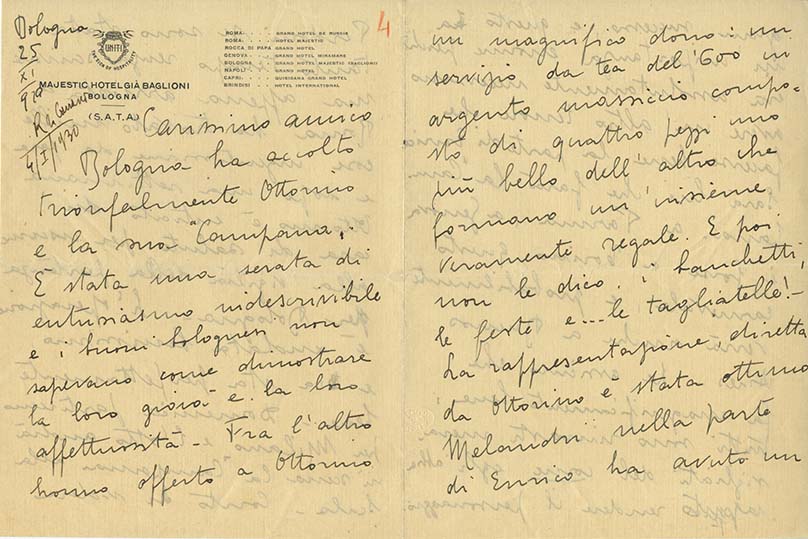 Bologna
25
XI
9
4/I/1930
MAJESTIC HOTEL GIÀ BAGLIONI
BOLOGNA
(S.A.T.A.)
ROMA-.... GRAND HOTEL DE RUSSIE
ROMA-.... HOTEL MAJESTIC
ROCCA DI PAPA GRAND HOTEL
GENOVA-.... GRAND HOTEL MIRAMARE
BOLOGNA GRAND HOTEL MAJESTIC
NAPOLI-.... GRAND HOTEL
CAPRI-.... QUISISANA GRAND HOTEL
BRINDISI-.... HOTEL INTERNATIONAL
4
Carissimo amico
Bologna ha accolto
trionfalmente Ottorino
e la sua "Campana".
È stata una serata di
entusiasmo indescrivibile
e i buoni bolognesi non
sapevano come dimostrare
la loro gioia e la loro
affettuosità - Fra l'altro
hanno offerto a Ottorino
un magnifico dono: un
servizio da tea del '600 in
argento massiccio compo-
sto di quattro pezzi uno
più bello dell'altro che
formano un insieme
veramente regale. E poi
non le dico, i banchetti,
le feste e... le tagliatelle! -
La rappresentazione, diretta
da Ottorino è stata ottima
Melandri nella parte
di Enrico ha avuto un